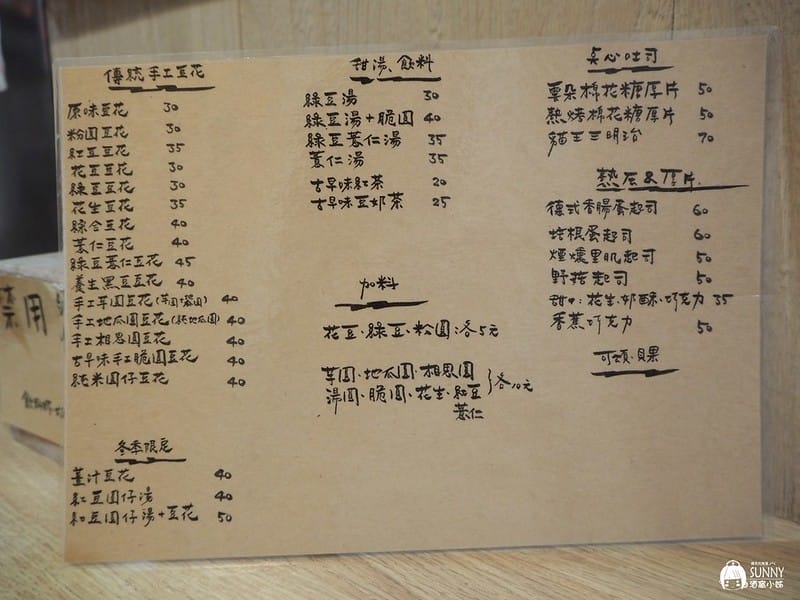 傳統手工豆花
原味豆花 30
粉圓豆花 30
紅豆豆花 35
花豆豆花 30
綠豆豆花 30
花生豆花 35
綜合豆花 40
薏仁豆花 40
綠豆薏仁豆花 45
養生黑豆豆花 40
手工芋圓豆花(芋圓 圓) 40
手工地瓜圓豆花(純地瓜圓) 40
手工相思圓豆花 40
古早味手工脆圓豆花 40
純米圓仔豆花 40
冬季限定
薑汁豆花 40
紅豆圓仔湯 40
紅豆圓仔湯+豆花 50
甜湯、飲料
綠豆湯 30
綠豆湯+脆圓 40
綠豆薏仁湯 35
薏仁湯 35
古早味紅茶 20
古早味豆奶茶 25
加料
花豆、綠豆、粉圓:各5元
芋圓、地瓜圓、相思圓
湯圓、脆圓、花生、紅豆 }各10元
薏仁
点心吐司
雲朵棉花糖厚片 50
熱烤棉花糖厚片 50
貓王三明治 70
熱压&厚片
德式香腸蛋起司 60
培根蛋起司 60
煙燻里肌起司 50
野菇起司 50
甜中:花生.奶酥.巧克力 35
香蕉巧克力 50
可頌.貝果
禁用
SUNNY
酒窩小姊